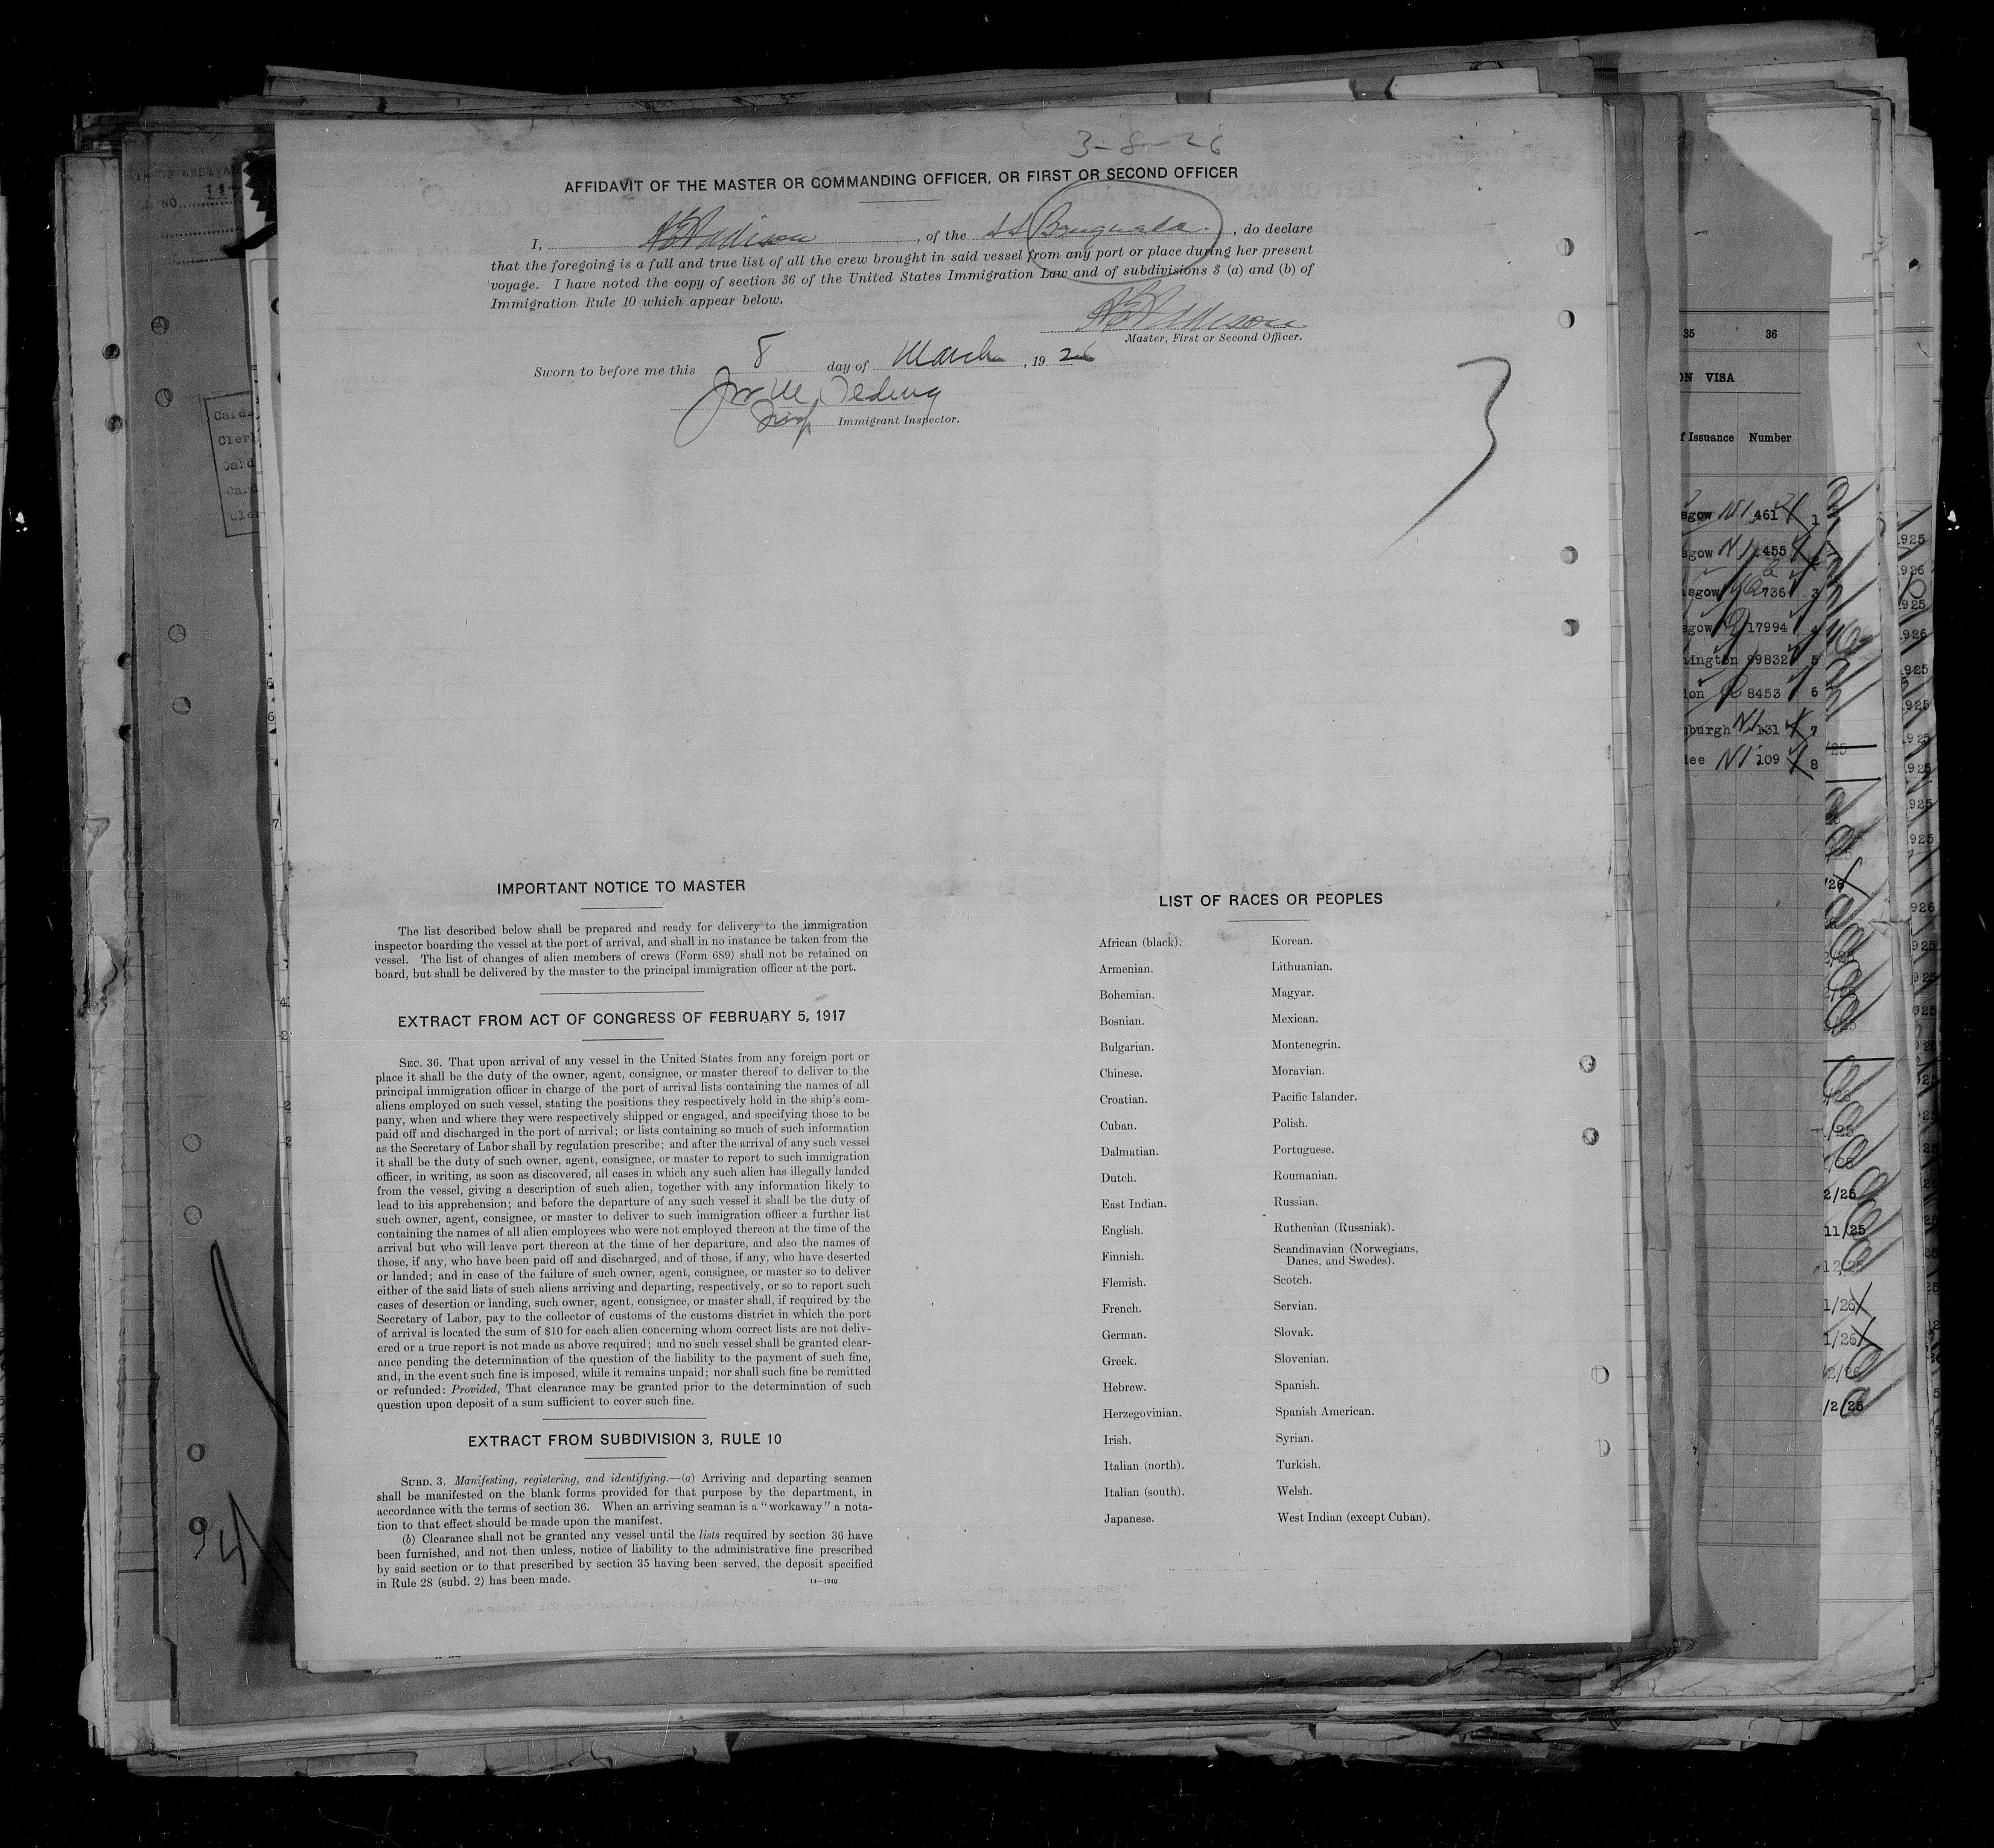 3-8-26
AFFIDAVIT OF THE MASTER OR COMMANDING OFFICER, OR FIRST OR SECOND OFFICER
I, , of the SS , do declare
that the foregoing is a full and true list of all the crew brought in said vessel from any port or place during her present
voyage. I have noted the copy of section 36 of the United States Immigration Law and of subdivisions 3 (a) and (b) of
Immigration Rule 10 which appear below.
Master, First or Second Officer.
Sworn to before me this 8 day of March, 1926
Immigrant Inspector.
3
IMPORTANT NOTICE TO MASTER
The list described below shall be prepared and ready for delivery to the immigration
inspector boarding the vessel at the port of arrival, and shall in no instance be taken from the
vessel. The list of changes of alien members of crews (Form 689) shall not be retained on
board, but shall be delivered by the master to the principal immigration officer at the port.
EXTRACT FROM ACT OF CONGRESS OF FEBRUARY 5, 1917
SEC. 36. That upon arrival of any vessel in the United States from any foreign port or
place it shall be the duty of the owner, agent, consignee, or master thereof to deliver to the
principal immigration officer in charge of the port of arrival lists containing the names of all
aliens employed on such vessel, stating the positions they respectively hold in the ship's com-
pany, when and where they were respectively shipped or engaged, and specifying those to be
paid off and discharged in the port of arrival; or lists containing so much of such information
as the Secretary of Labor shall by regulation prescribe; and after the arrival of any such vessel
it shall be the duty of such owner, agent, consignee, or master to report to such immigration
officer, in writing, as soon as discovered, all cases in which any such alien has illegally landed
from the vessel, giving a description of such alien, together with any information likely to
lead to his apprehension; and before the departure of any such vessel it shall be the duty of
such owner, agent, consignee, or master to deliver to such immigration officer a further list
containing the names of all alien employees who were not employed thereon at the time of the
arrival but who will leave port thereon at the time of her departure, and also the names of
those, if any, who have been paid off and discharged, and of those, if any, who have deserted
or landed; and in case of the failure of such owner, agent, consignee, or master so to deliver
either of the said lists of such aliens arriving and departing, respectively, or so to report such
cases of desertion or landing, such owner, agent, consignee, or master shall, if required by the
Secretary of Labor, pay to the collector of customs of the customs district in which the port
of arrival is located the sum of $10 for each alien concerning whom correct lists are not deliv-
ered or a true report is not made as above required; and no such vessel shall be granted clear-
ance pending the determination of the question of the liability to the payment of such fine,
and, in the event such fine is imposed, while it remains unpaid; nor shall such fine be remitted
or refunded: Provided, That clearance may be granted prior to the determination of such
question upon deposit of a sum sufficient to cover such fine.
EXTRACT FROM SUBDIVISION 3, RULE 10
SUBD. 3. Manifesting, registering, and identifying.—(a) Arriving and departing seamen
shall be manifested on the blank forms provided for that purpose by the department, in
accordance with the terms of section 36. When an arriving seaman is a "workaway" a nota-
tion to that effect should be made upon the manifest.
(b) Clearance shall not be granted any vessel until the lists required by section 36 have
been furnished, and not then unless, notice of liability to the administrative fine prescribed
by said section or to that prescribed by section 35 having been served, the deposit specified
in Rule 28 (subd. 2) has been made.
14—1240
LIST OF RACES OR PEOPLES
African (black). Korean.
Armenian. Lithuanian.
Bohemian. Magyar.
Bosnian. Mexican.
Bulgarian. Montenegrin.
Chinese. Moravian.
Croatian. Pacific Islander.
Cuban. Polish.
Dalmatian. Portuguese.
Dutch. Roumanian.
East Indian. Russian.
English. Ruthenian (Russniak).
Finnish. Scandinavian (Norwegians,
Danes, and Swedes).
Flemish. Scotch.
French. Servian.
German. Slovak.
Greek. Slovenian.
Hebrew. Spanish.
Herzegovinian. Spanish American.
Irish. Syrian.
Italian (north). Turkish.
Italian (south). Welsh.
Japanese. West Indian (except Cuban).
35 36
ON VISA
f Issuance Number
sgow 461 1
sgow 455
sgow 736 3
sgow 17994 4
ington 99832 5
on 8453 6
burgh 131 7
ee 109 8